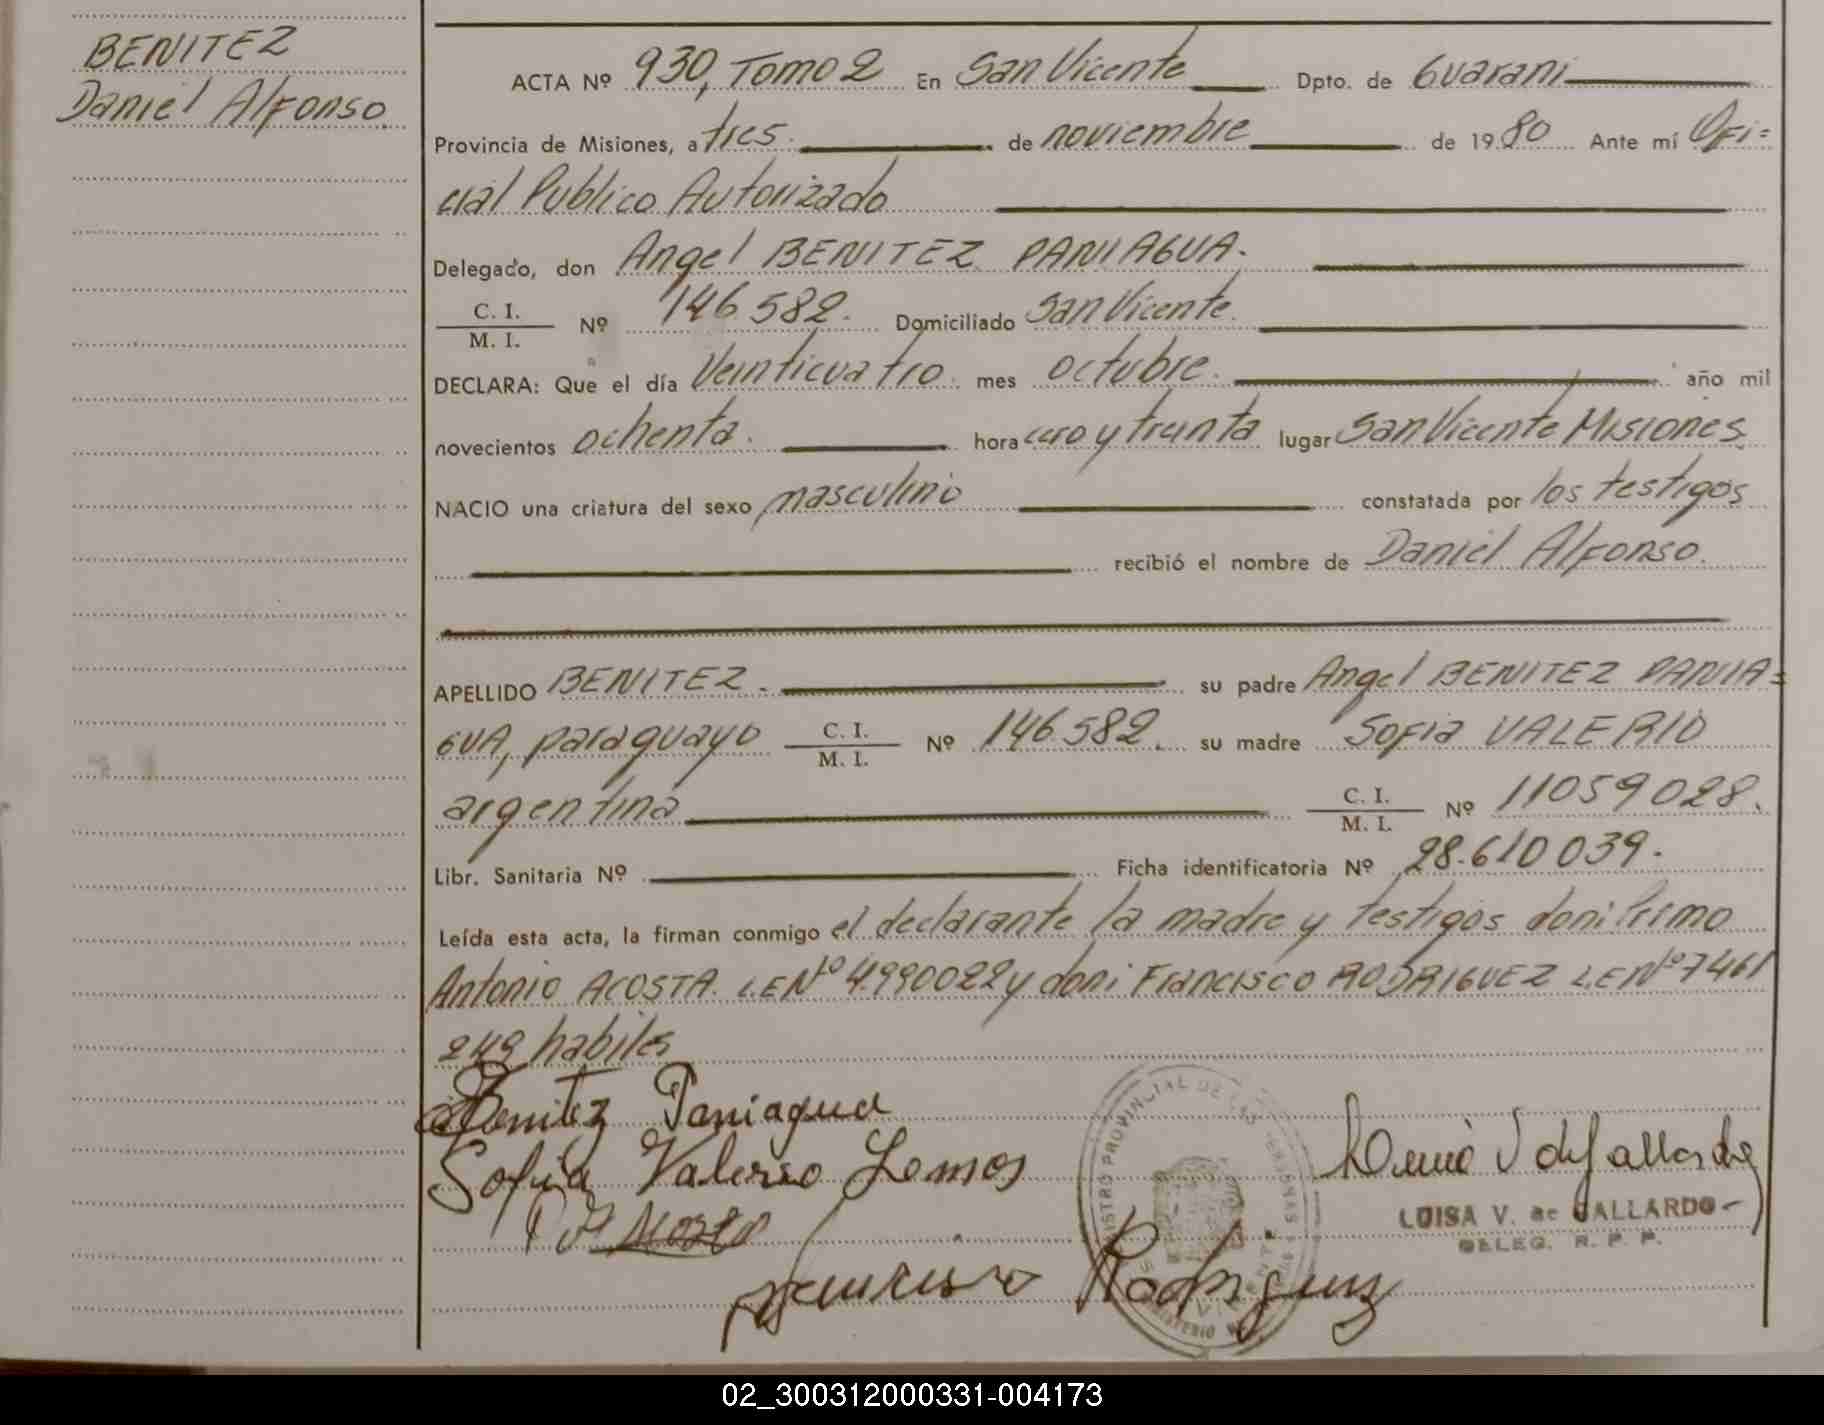 BENITEZ
Daniel Alfonso.
ACTA Nº 930, Tomo 2 En San Vicente Dpto. de Guarani
Provincia de Misiones, a tres. de noviembre de 1980 Ante mí Ofi=
cial Publico Autorizado
Delegado, don Angel BENITEZ PANIAGUA.
C. I.
M. I.
Nº 146582. Domiciliado San Vicente.
DECLARA: Que el día Veinticuatro. mes octubre. año mil
novecientos ochenta. hora cero y treinta lugar San Vicente Misiones
NACIO una criatura del sexo masculino constatada por los testigos
recibió el nombre de Daniel Alfonso.
APELLIDO BENITEZ. su padre Angel BENITEZ PANIA=
GUA, paraguayo C. I. M. I. Nº 146582. su madre Sofia VALERIO
argentina C. I. M. I. Nº 11059028.
Libr. Sanitaria Nº Ficha identificatoria Nº 28.610039.
Leída esta acta, la firman conmigo el declarante la madre y testigos don: Primo
Antonio ACOSTA. L.E Nº 4.990022 y don: Francisco RODRIGUEZ L.E Nº 7461
249 habiles
Benitez Paniagua
Sofia Valerio Lemos
Francisco Rodriguez
LUISA V. de GALLARDO
DELEG. R. P. P.
02_300312000331-004173